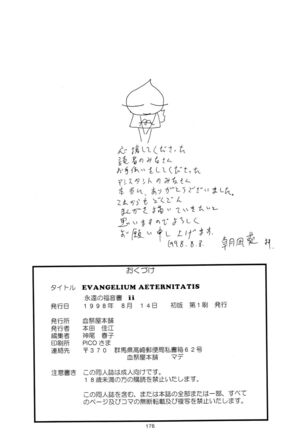 応援してくださった
読者のみなさん
お手伝いをしてくださった
アシスタントのみなさん
本当に、ありがとうございました。
これからもどんどん
まんがを描いていきたいと
思いますのでよろしく
お願い申し上げます。
'98.8.8.
おくづけ
タイトル EVANGELIUM AETERNITATIS
永遠の福音書 ii
発行日 1998年 8月 14日 初版 第1刷 発行
発行所 血祭屋本舗
発行者 本田 佳江
編集者 神尾 春子
印刷所 PICOさま
連絡先 〒370 群馬県高崎郵便局私書箱62号
血祭屋本舗 マデ
注意書き この同人誌は成人向けです。
18歳未満の方の購読を禁止いたします。
この同人誌を含む、または本誌の全部または一部、すべて
のページ及びコマの無断転載及び複写を禁止いたします。
176